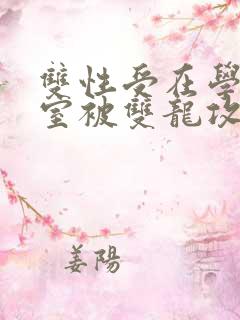 雙性受在學
室被雙龍攻
姜陽